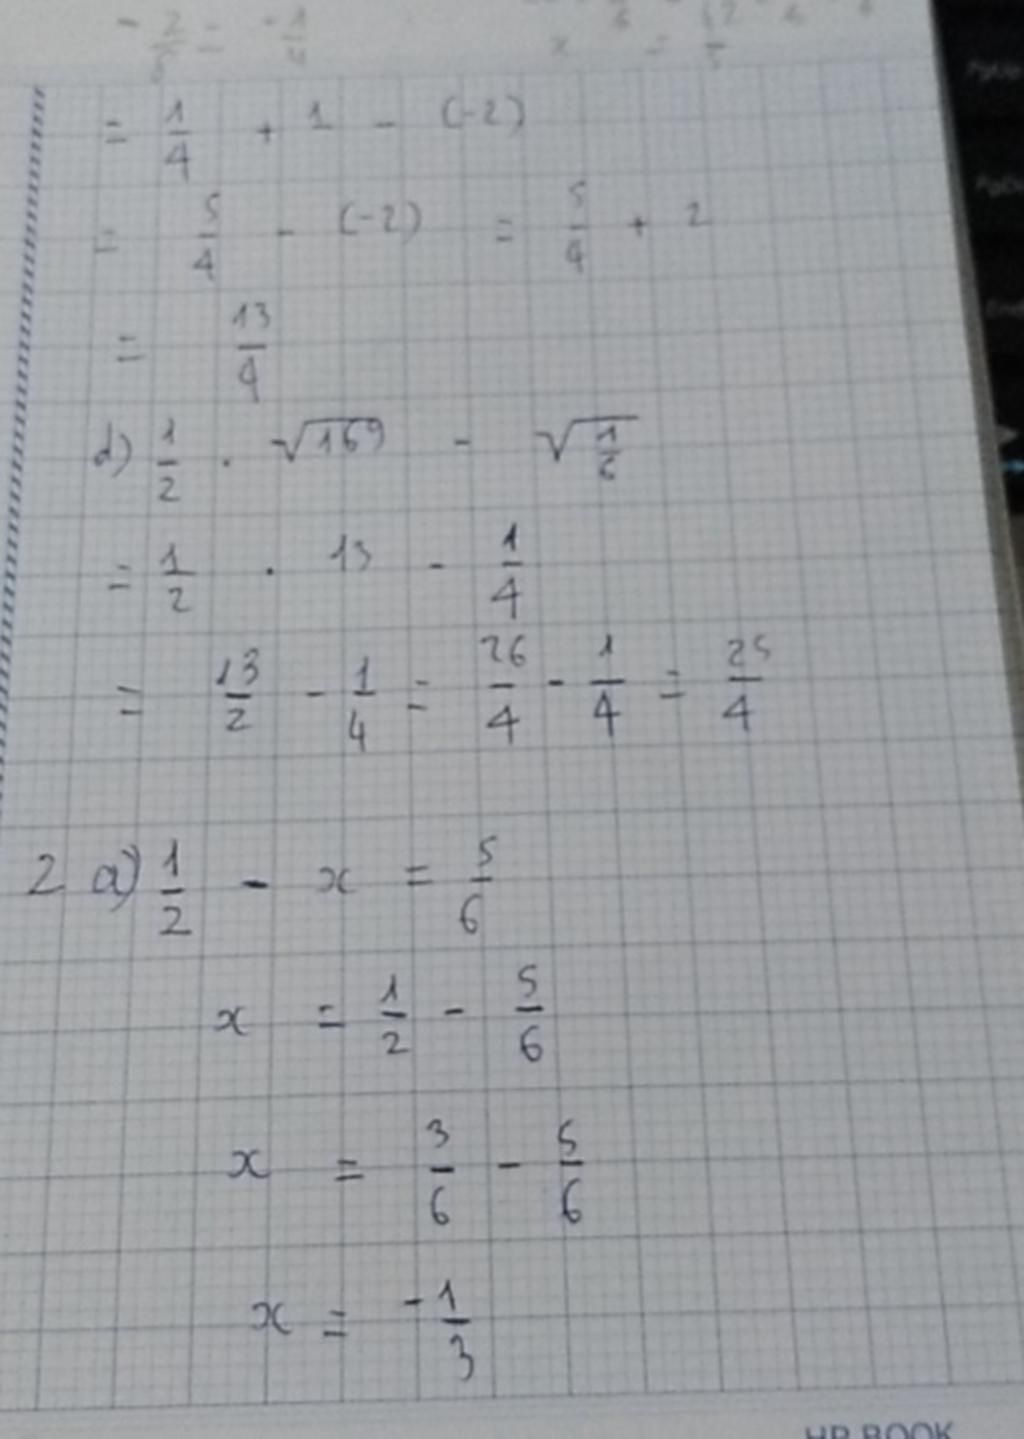 = 1/4 + 1 - (-2)
= 5/4 - (-2) = 5/4 + 2
= 13/4
d) 1/2 . √169 - √1/2
= 1/2 . 13 - 1/4
= 13/2 - 1/4 = 26/4 - 1/4 = 25/4
2 a) 1/2 - x = 5/6
x = 1/2 - 5/6
x = 3/6 - 5/6
x = -1/3